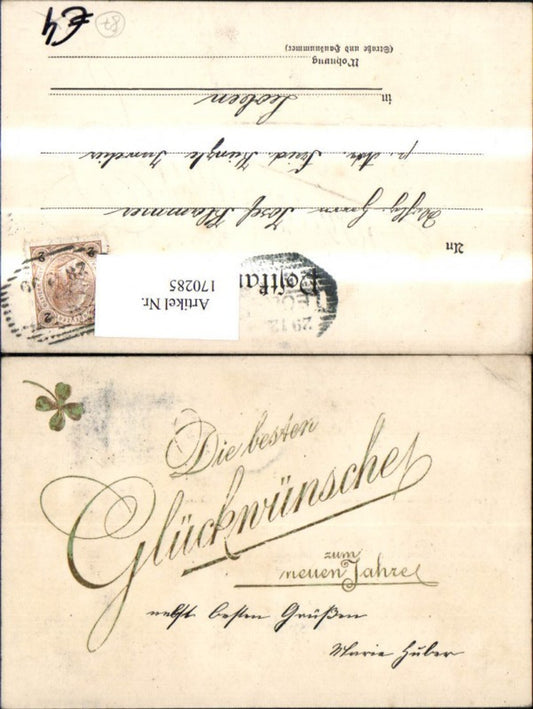 €4
87
Postkar
An
Herrn Josef Klammer
p. Adr. Ferd. Künzle Juwelier
in Leoben
Wohnung
(Straße und Hausnummer)
Artikel Nr.
170285
29 12
2 2
Die besten
Glückwünsche
zum
neuen Jahre
nebst besten Grüßen
Marie Huber